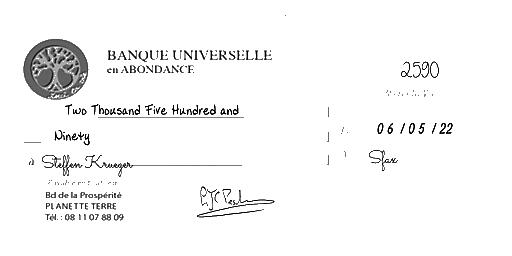 BANQUE UNIVERSELLE
en ABONDANCE
2590
Two Thousand Five Hundred and
06/05/22
Ninety
à Steffen Krueger
Sfax
Bd de la Prospérité
PLANETTE TERRE
Tél. : 08 11 07 88 09